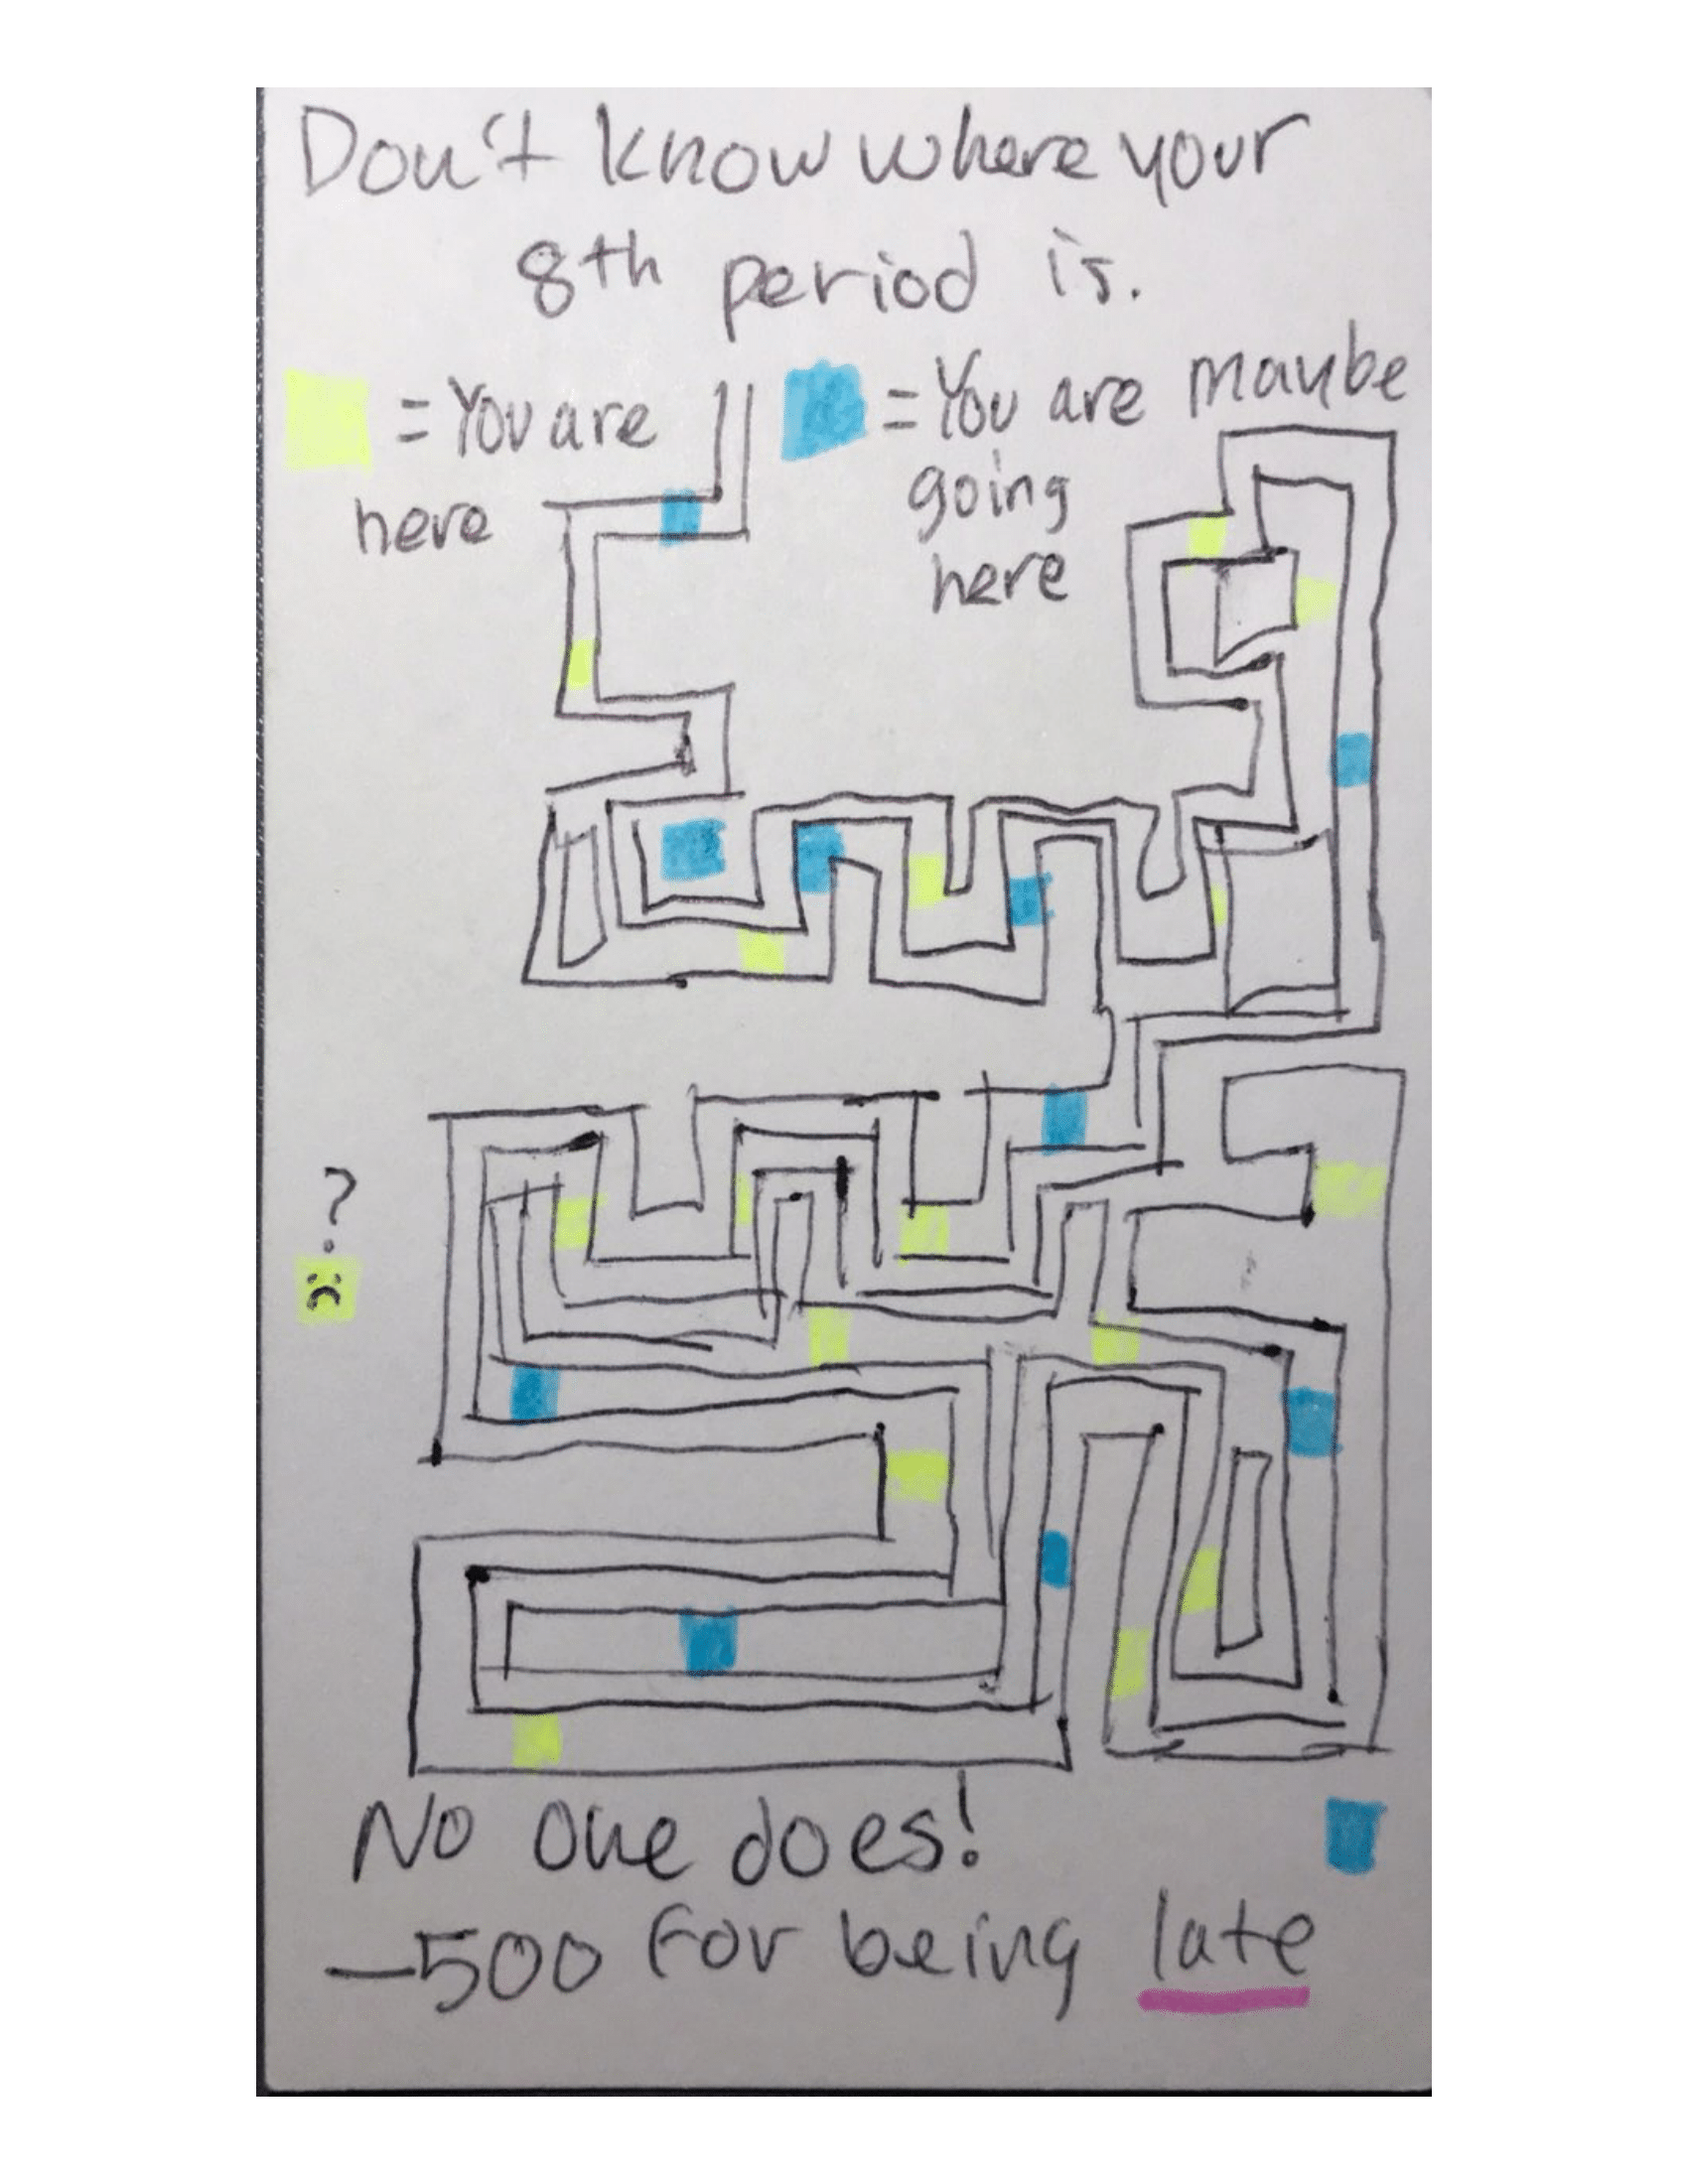 Don't know where your
8th period is.
= You are
here
= You are maybe
going
here
?
No one does!
-500 for being late